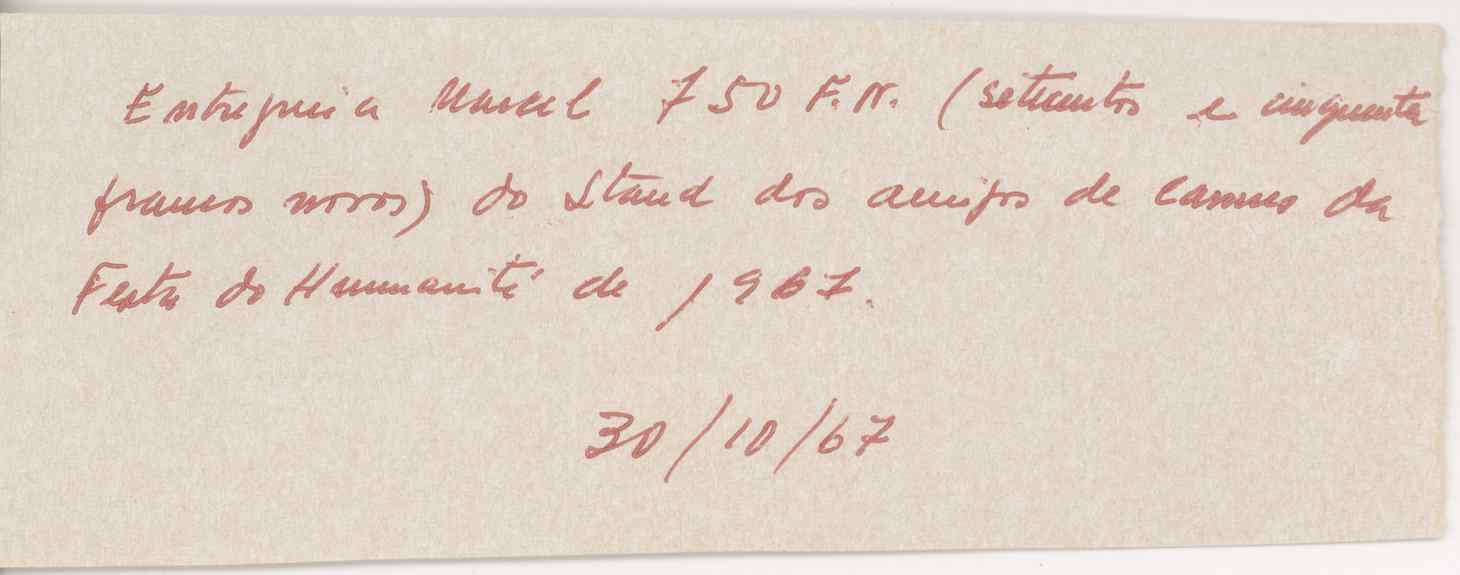 Entreguei a Marcel 750 F.N. (setecentos e cinquenta
francos novos) do Stand dos amigos de Camus da
Festa do Humanité de 1967.
30/10/67